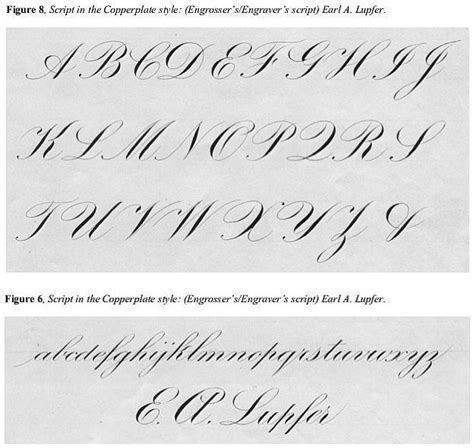 Figure 8, Script in the Copperplate style: (Engrosser's/Engraver's script) Earl A. Lupfer.
A B C D E F G H I J
K L M N O P Q R S
T U V W X Y Z &
Figure 6, Script in the Copperplate style: (Engrosser's/Engraver's script) Earl A. Lupfer.
abcdefghijklmnopqrstuvwxyz
E. A. Lupfer